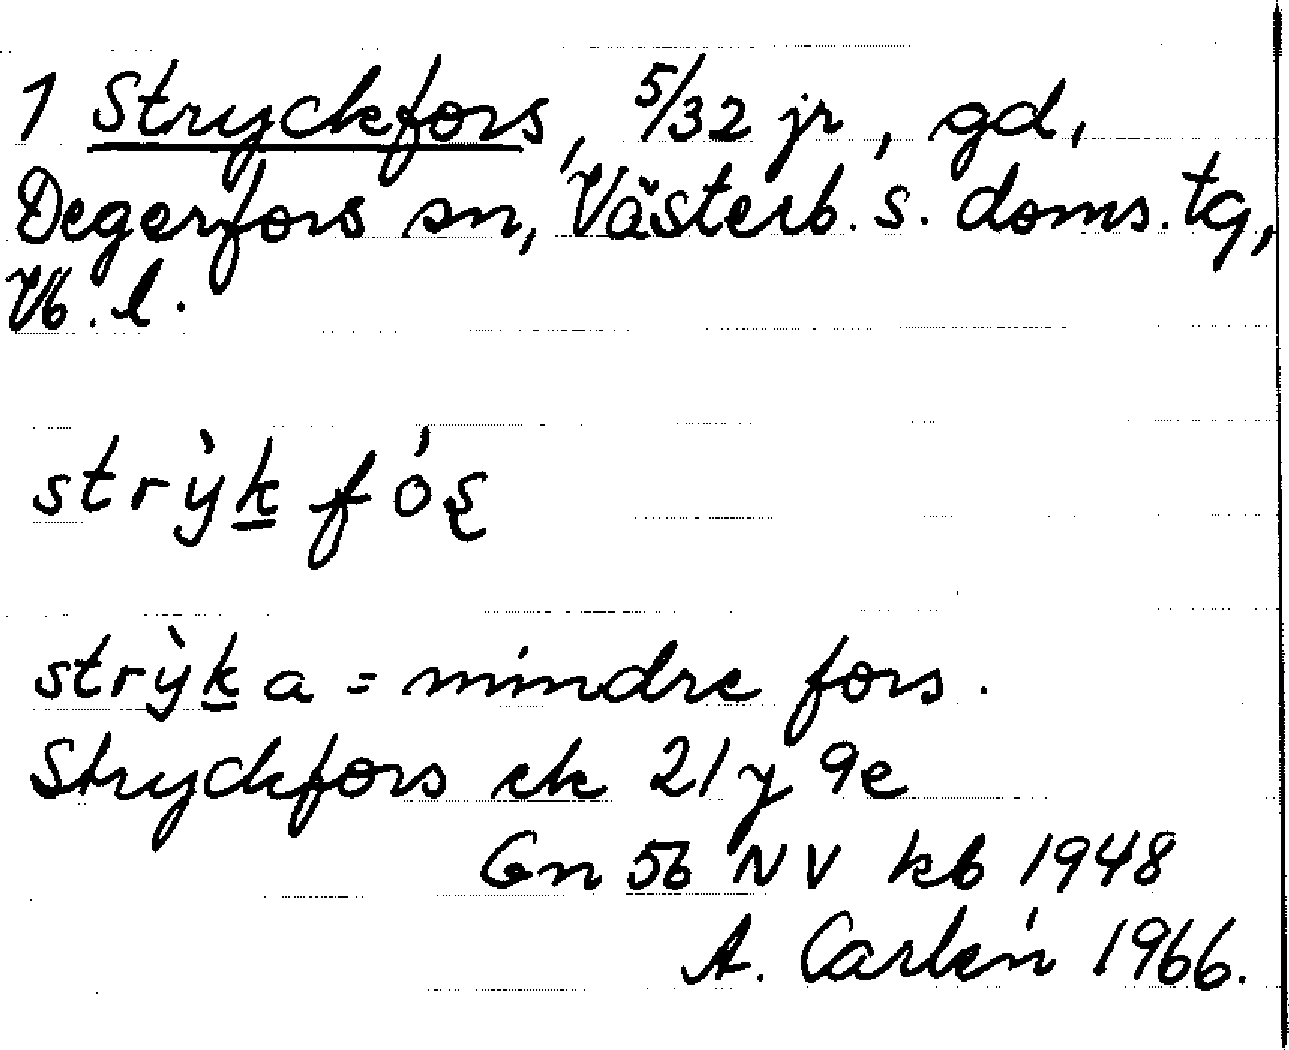 1 Stryckfors, 5/32 jr, gd,
Degerfors sn, Västerb. s. doms. tg,
Vb. l.
strỳk fóʂ
strỳka = mindre fors.
Stryckfors ek 21 y 9e
Gn 56 NV kb 1948
A. Carlén 1966.